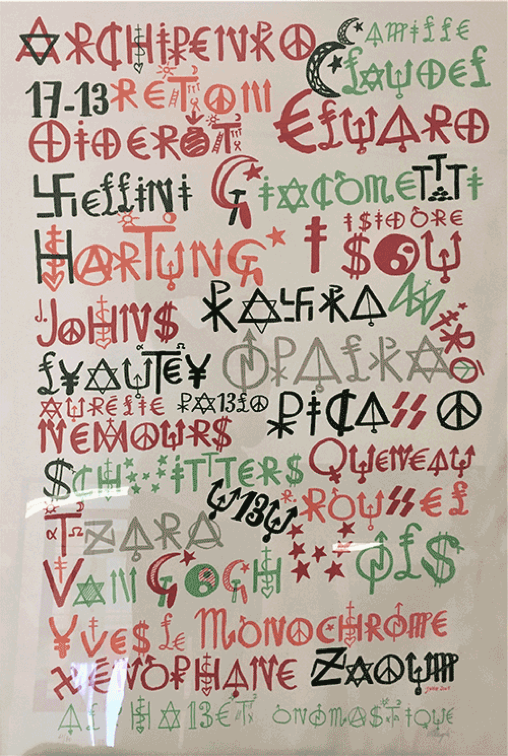 ARCHIPENKO CAMILLE
CLAUDEL
17-13RETON
DIDEROT ELUARD
FELLINI GIACOMETTI
HARTUNG ISIDORE
ISOU
J. JOHNS KAFKA MIRO
LYAUTEY OPALKA
AURELIE PABLO PICASSO
NEMOURS
SCHWITTERS QUENEAU
UBU R. ROUSSEL
TZARA WOLS
VAN GOGH
YVES LE MONOCHROME
XENOPHANE ZAOUM
ALPHABET ONOMASTIQUE